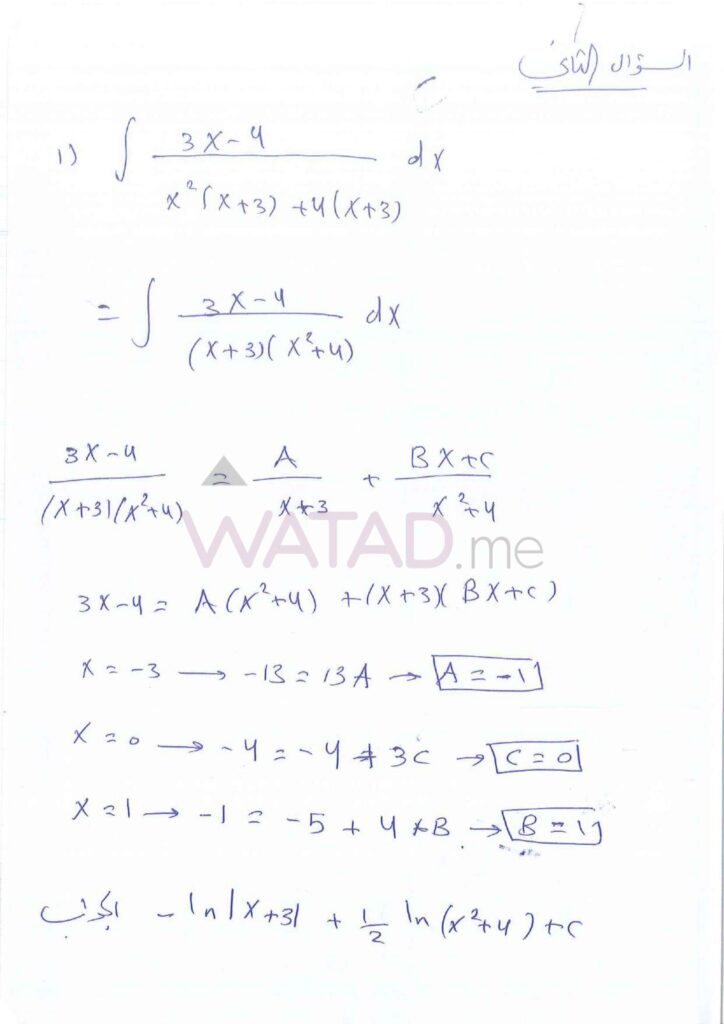 السؤال الثاني
1) ∫ (3x-4) / (x²(x+3) +4(x+3)) dx
= ∫ (3x-4) / ((x+3)(x²+4)) dx
(3x-4) / ((x+3)(x²+4)) = A / (x+3) + (Bx+c) / (x²+4)
WATAD.me
3x-4 = A(x²+4) +(x+3)(Bx+c)
x = -3 → -13 = 13A → A = -1
x = 0 → -4 = -4 + 3c → c = 0
x = 1 → -1 = -5 + 4*B → B = 1
الجواب -ln|x+3| + 1/2 ln(x²+4) + c